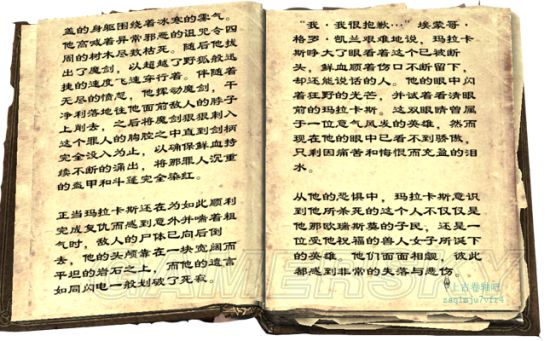 盖的身躯围绕着冰寒的雾气。
他高喊着异常邪恶的诅咒令四
周的树木尽数枯死。随后他拔
出了魔剑，以超越了野狐般迅
捷的速度飞速穿行着。伴随着
无尽的愤怒，他挥动魔剑，干
净利落地往他面前敌人的脖子
上削去，之后将魔剑狠狠刺入
这个罪人的胸腔之中直到剑柄
完全没入为止，以确保鲜血持
续不断的涌出，将那罪人沉重
的盔甲和斗篷完全染红。
正当玛拉卡斯还在为如此顺利
完成复仇而感到意外并喘着粗
气时，敌人的尸体已向后倒
去，他的头颅靠在一块宽阔而
平坦的岩石之上，而他的遗言
如同闪电一般划破了死寂。
“我·我很抱歉…”埃蒙哥·
格罗·凯兰艰难地说，玛拉卡
斯睁大了眼看着这个已被断
头，鲜血顺着伤口不断留下，
却还能说话的人。他的眼中闪
着狂野的光芒，并试着看清眼
前的玛拉卡斯，这双眼睛曾属
于一位意气风发的英雄，然而
现在他的眼中已看不到骄傲，
只剩因痛苦和悔恨而充盈的泪
水。
从他的恐惧中，玛拉卡斯意识
到他所杀死的这个人不仅仅是
他那欧瑞斯莫的子民，还是一
位受他祝福的兽人女子所诞下
的英雄。他们面面相觑，彼此
都感到非常的失落与悲伤。
GAMERSKY
@上古卷轴吧
zaqimju7vfr4